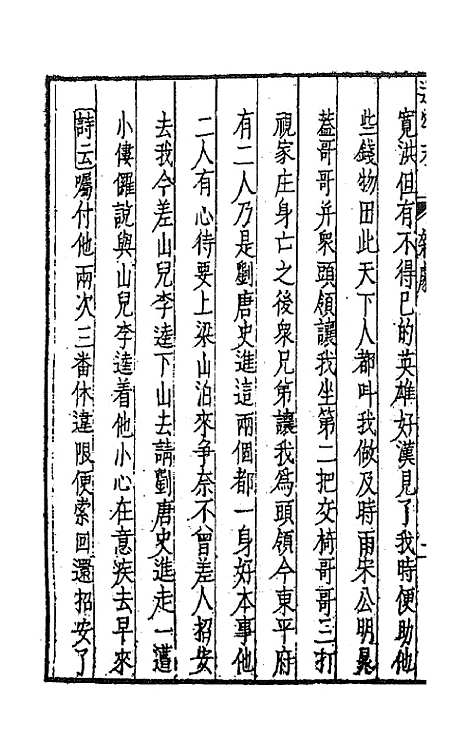 寬洪但有不得已的英雄好漢見了我時便助他
些錢物因此天下人都叫我做及時雨宋公明晁
蓋哥哥并衆頭領讓我坐第二把交椅哥哥三打
祝家庄身亡之後衆兄弟讓我爲頭領今東平府
有二人乃是劉唐史進這兩個都一身好本事他
二人有心待要上梁山泊來爭奈不曾差人招安
去我今差山兒李逵下山去請劉唐史進走一遭
小僂儸說與山兒李逵着他小心在意疾去早來
詩云囑付他兩次三番休違限便索回還招安了